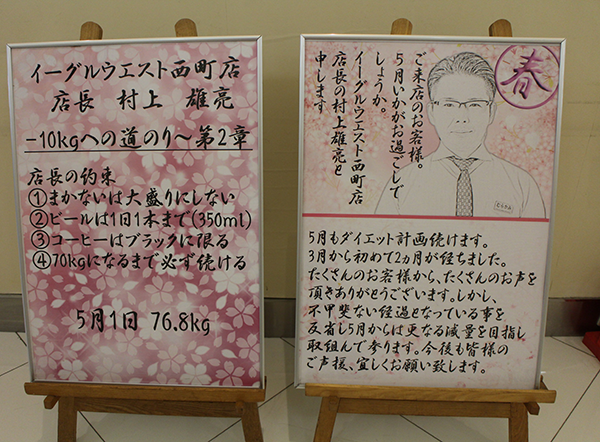 イーグルウエスト西町店
店長 村上 雄亮
-10kgへの道のり～第2章
店長の約束
①まかないは大盛りにしない
②ビールは1日1本まで(350ml)
③コーヒーはブラックに限る
④70kgになるまで必ず続ける
5月1日 76.8kg
春
ご来店のお客様。
5月いかがお過ごしで
しょうか。
イーグルウエスト西町店
店長の村上雄亮と
申します
むらかみ
5月もダイエット計画続けます。
3月から初めて2ヵ月が経ちました。
たくさんのお客様から、たくさんのお声を
頂きありがとうございます。しかし、
不甲斐ない経過となっている事を
反省し5月からは更なる減量を目指し
取組んで参ります。今後も皆様の
ご声援、宜しくお願い致します。